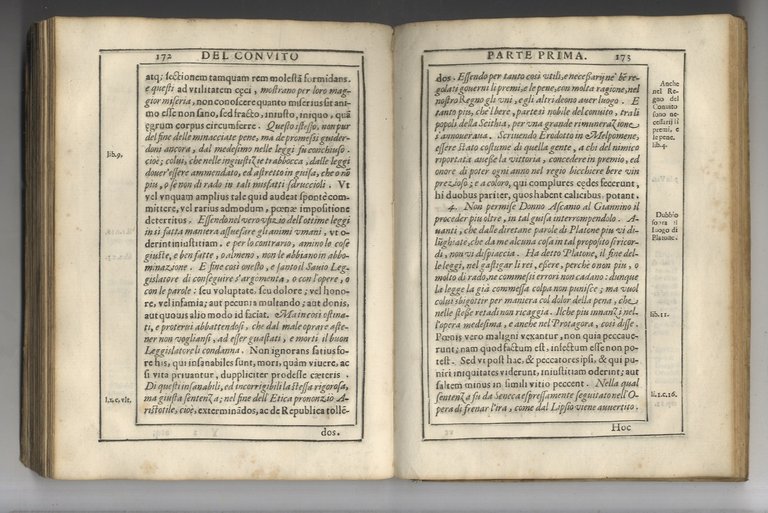 172 DEL CONVITO
atq; sectionem tamquam rem molestã formidans.
e questi ad vtilitatem cęci, mostrano per loro mag-
gior miseria, non conoscere quanto miserius sit ani-
mo esse non sano, sed fracto, iniusto, iniquo, quã
ęgrum corpus circumferre. Questo istesso, non pur
del fine delle minacciate pene, ma de promessi guider-
doni ancora, dal medesimo nelle leggi fu conchiuso.
lib.9.
cioè; colui, che nelle ingiustizie trabbocca, dalle leggi
douer'essere ammendato, ed astretto in guisa, che o nõ
piu, o se non di rado in tali misfatti sdruccioli. Vt
vel vnquam amplius tale quid audeat sponte com-
mittere, vel rarius admodum, pœnæ impositione
deterritus. Essendo nel vero vfizio dell'ottime leggi
in sì fatta maniera assuefare gli animi vmani, vt o-
derint iniustitiam. e per lo contrario, amino le cose
giuste, e ben fatte, o almeno, non le abbiano in abbo-
minazione. E fine così onesto, e santo il Sauio Leg-
gislatore di conseguire s'argomenta, o con l'opere, o
con le parole: seu voluptate. seu dolore; vel hono-
re, vel infamia; aut pecunis multando; aut donis,
aut quouis alio modo id faciat. Ma in così ostina-
ti, e proterui abbattendosi, che dal male oprar e aste-
ner non vogliansi, ad esser guastati, e morti il buon
Leggislatore li condanna. Non ignorans satius fo-
re his, qui insanabiles sunt, mori, quàm viuere, ac
si vita priuantur, duppliciter prodesse cæteris.
Di questi insanabili, ed incorrigibili la stessa rigorosa,
ma giusta sentenza; nel fine dell'Etica prononziò A-
l.x.c.vlt.
ristotile, cioè, exterminãdos, ac de Republica tollē-
dos.
PARTE PRIMA. 173
dos. Essendo per tanto così vtili, e necessarij nè bē re-
golati gouerni li premi, e le pene, con molta ragione, nel
nostro Regno gli vni, e gli altri deono auer luogo. E
tanto piu, che libere, parte sì nobile del conuito, tra li
popoli della Scithia, per vna grande rimunerazione
s'annoueraua. Scriuendo Erodotto in Melpomene,
essere stato costume di quella gente, a chi del nimico
riportata auesse la vittoria, concedere in premio, ed
onore di poter ogni anno nel regio bicchiere bere vin
prezioso; e a coloro, qui complures cędes fecerunt,
hi duobus pariter, quos habent calicibus potant.
Anche
nel Re
gno del
Conuito
sono ne
cessarij i
premi, e
le pene.
lib.4.
4. Non permise Donno Ascanio al Giannino il
proceder piu oltre, in tal guisa interrompendolo. A-
uanti, che dalle diretane parole di Platone piu vi di-
lūghiate, che da me alcuna cosa in tal proposito si ricor-
di, non vi dispiaccia. Ha detto Platone, il fine del-
le leggi, nel gastigar li rei, essere, perche o non piu, o
molto di rado, ne commessi errori non cadano: dunque
la legge la già commessa colpa non punisce; ma vuol
colui sbigottir per maniera col dolor della pena, che
nelle stesse reta di non ricaggia. Il che piu innanzi nel-
l'opera medesima, e anche nel Protagora, così disse.
Dubbio
sopra il
luogo di
Platone.
lib.11.
Pœnis vero maligni vexantur, non quia peccaue-
runt; nam quod factum est, infectum esse non po-
test. Sed vt post hac, & peccatores ipsi, & qui pu-
niri iniquitates viderunt, iniustitiam oderint; aut
saltem minus in simili vitio peccent. Nella qual
sentenza fu da Seneca espressamente seguitato nell'O-
pera di frenar l'ira, come dal Lipsio viene auuertito.
li.1.c.16.
Hoc